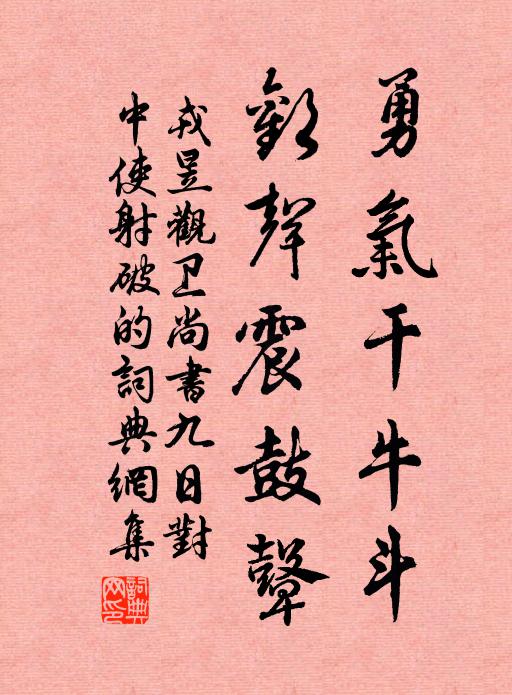 勇氣干牛斗
歡聲震鼓鼙
戎昱觀卫尚書九日對
中使射破的詞典網集